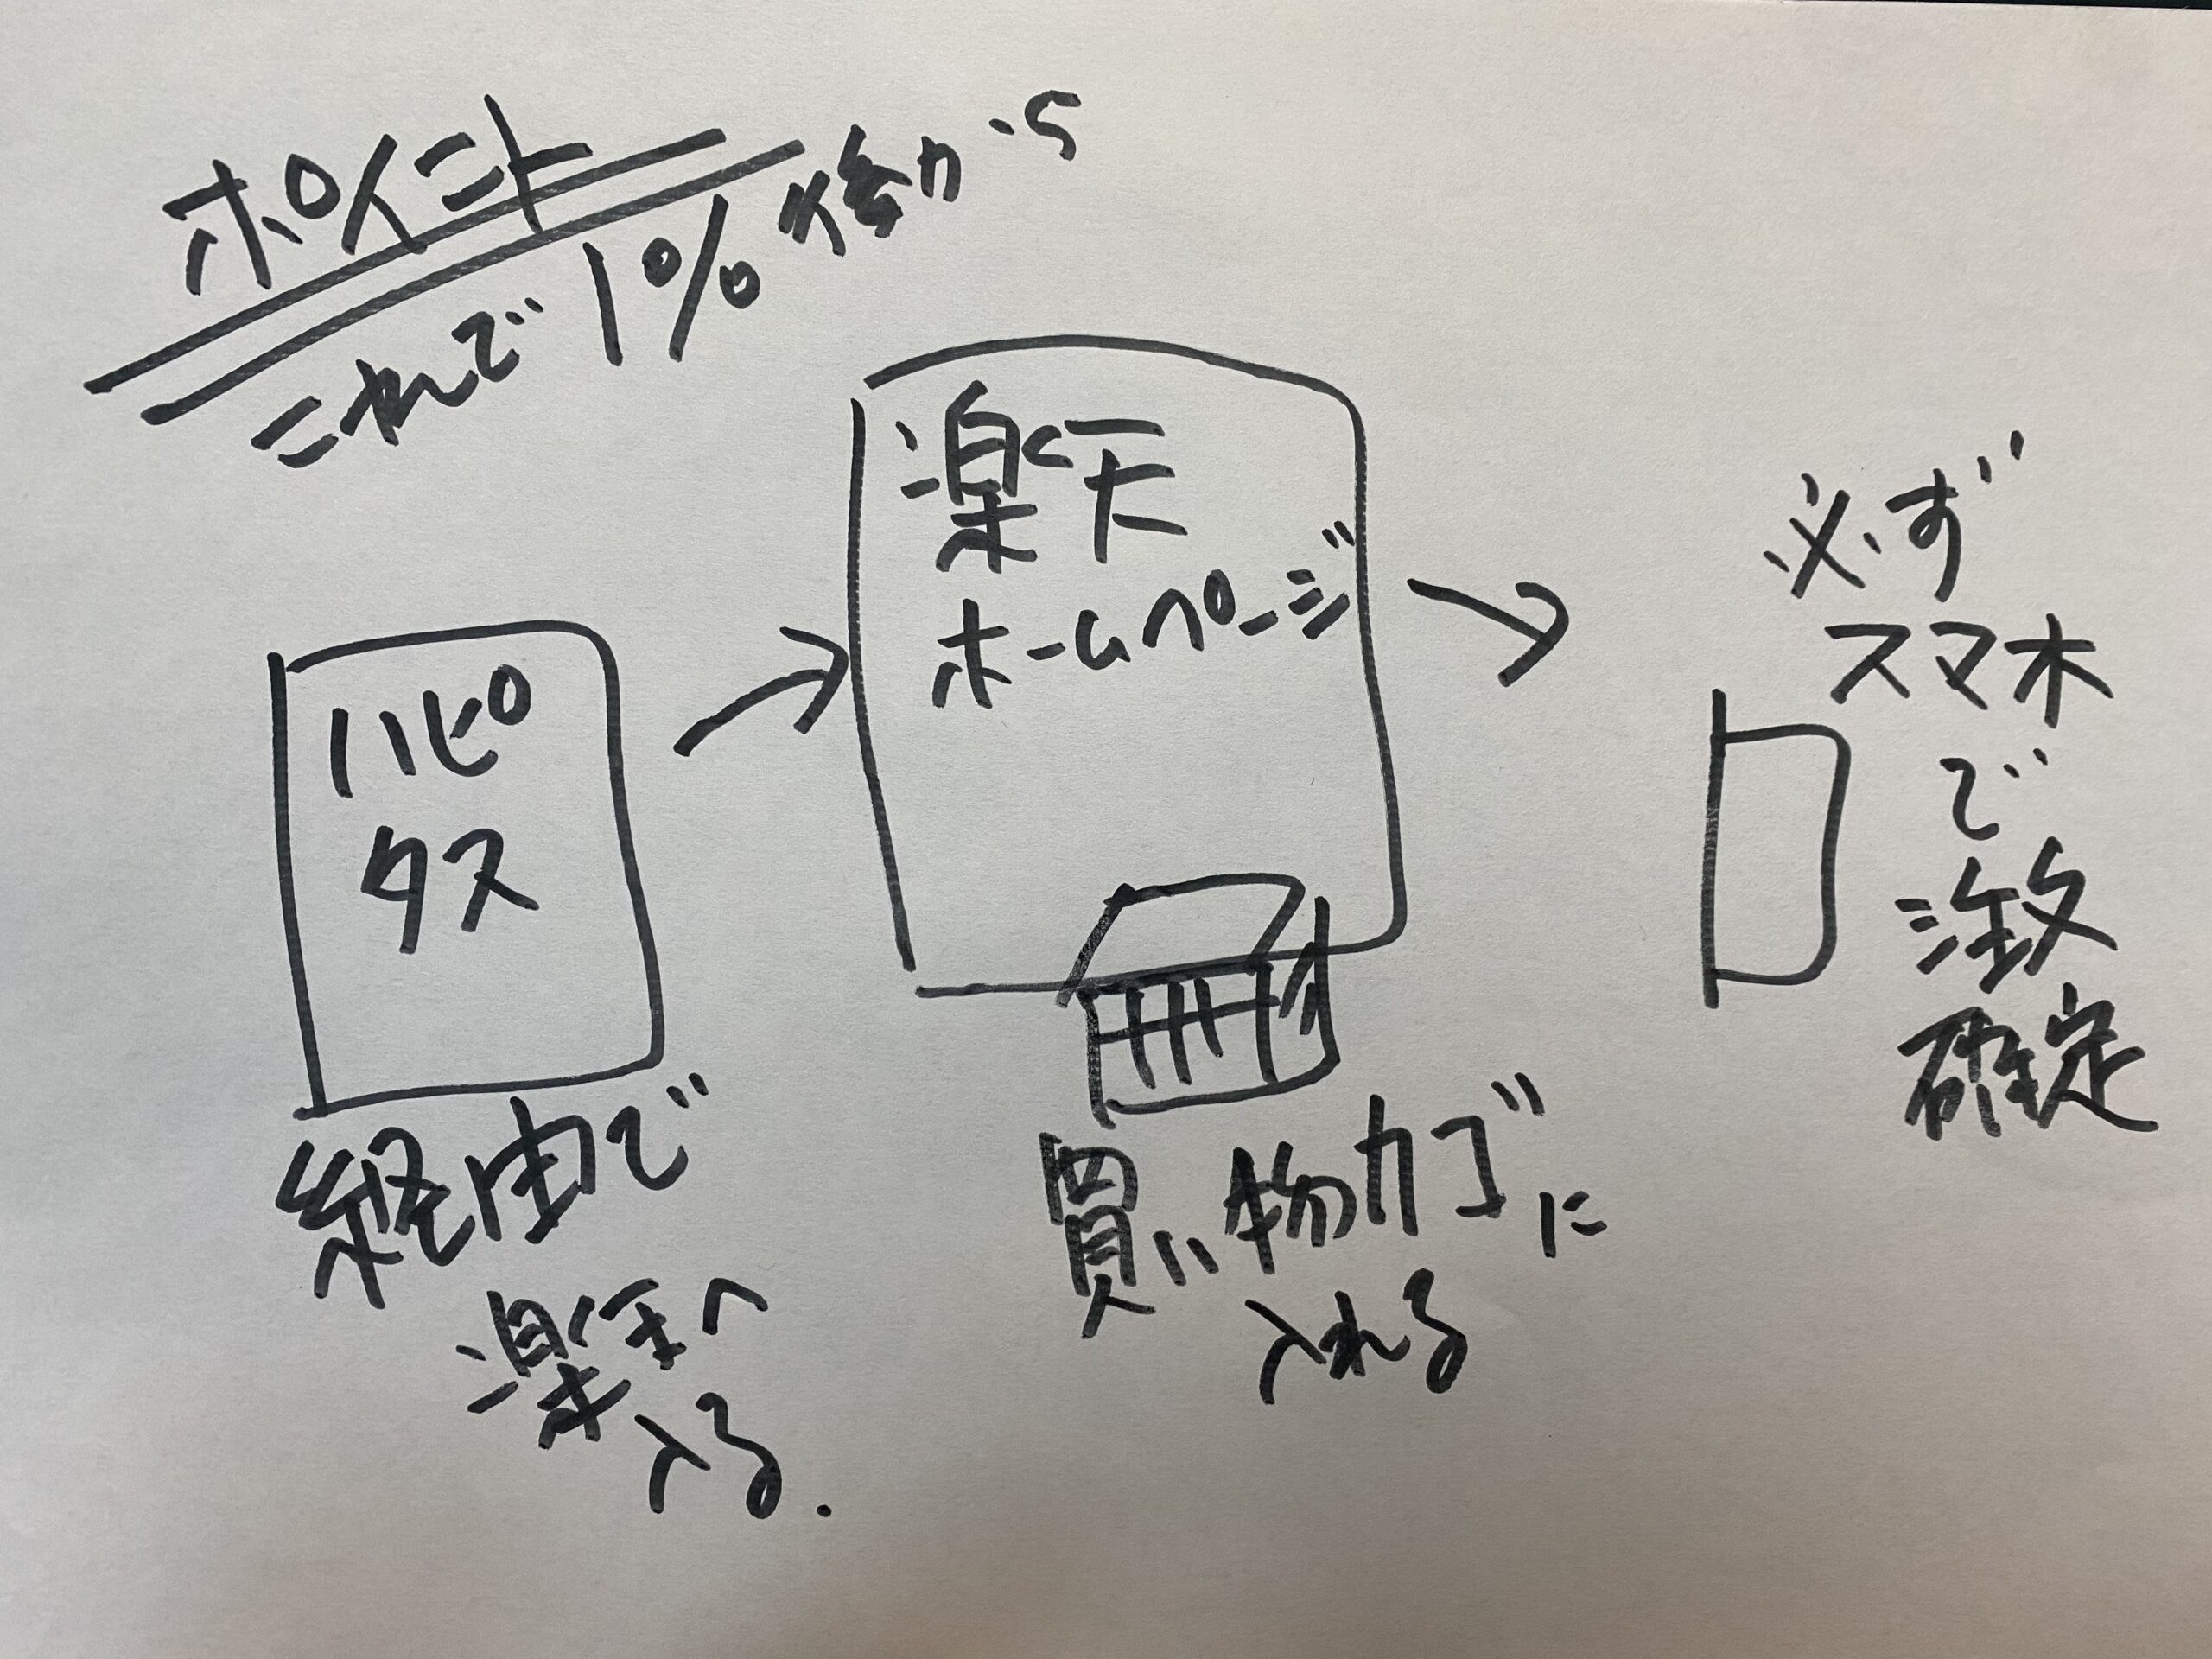 ポイント
これで1% 後から
ハピ
タス
経由で
楽天へ
入る.
楽天
ホームページ
買い物カゴに
入れる
必ず
スマホ
で
注文
確定